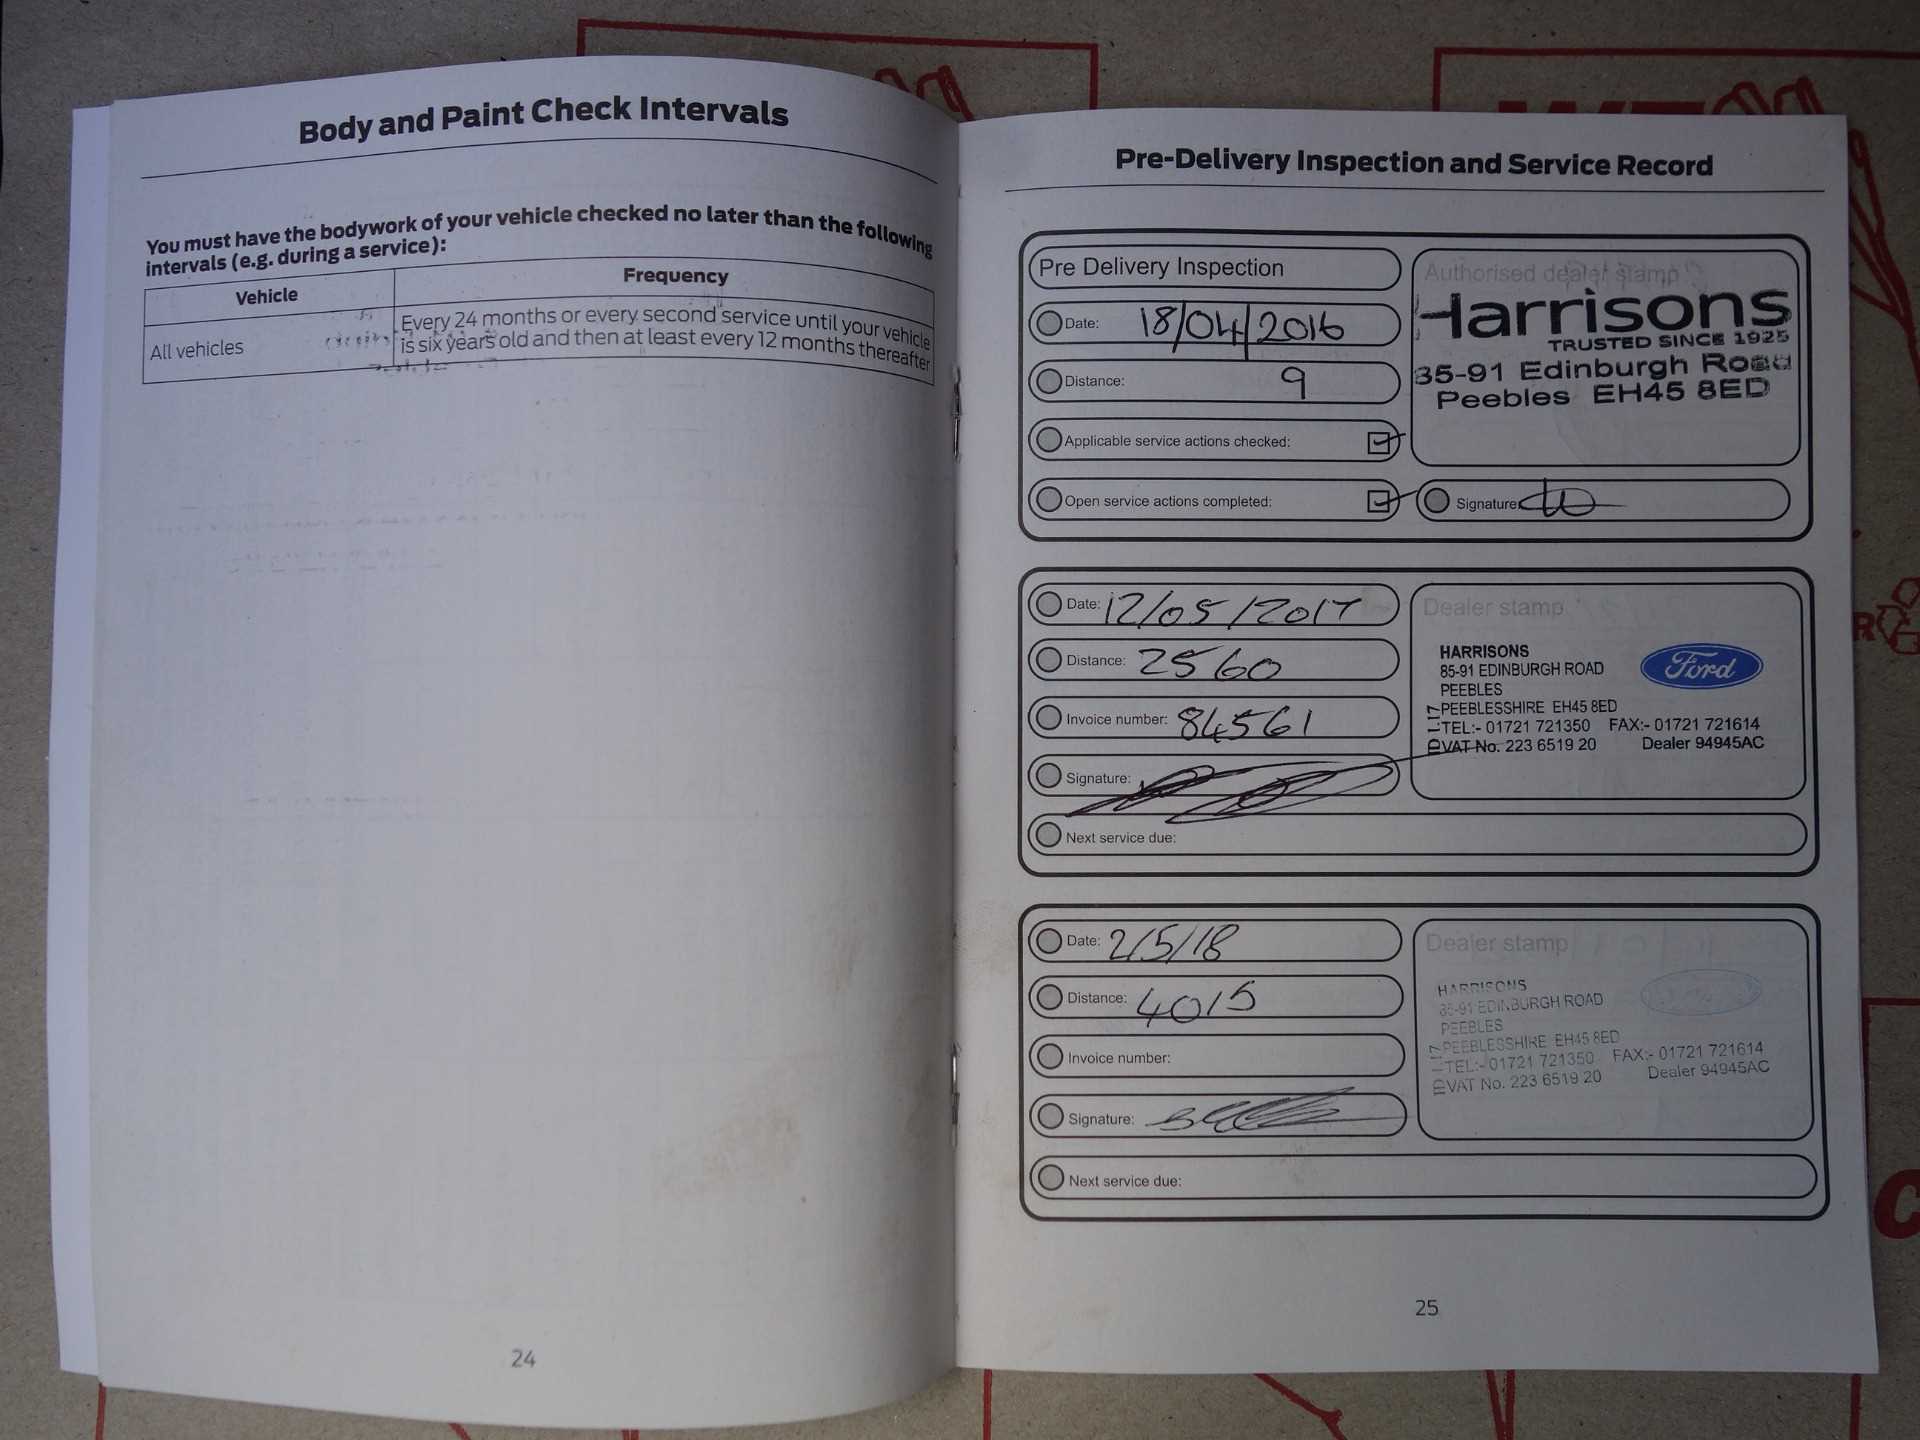 Body and Paint Check Intervals
You must have the bodywork of your vehicle checked no later than the following
intervals (e.g. during a service):
Vehicle
Frequency
All vehicles
Every 24 months or every second service until your vehicle
is six years old and then at least every 12 months thereafter
24
Pre-Delivery Inspection and Service Record
Pre Delivery Inspection
Date: 18/04/2016
Distance: 9
Applicable service actions checked:
Open service actions completed:
Authorised dealer stamp
Harrisons
TRUSTED SINCE 1925
85-91 Edinburgh Road
Peebles EH45 8ED
Signature:
Date: 12/05/2017
Distance: 2560
Invoice number: 84561
Signature:
Next service due:
Dealer stamp
HARRISONS
85-91 EDINBURGH ROAD
PEEBLES
PEEBLESSHIRE EH45 8ED
TEL:- 01721 721350 FAX:- 01721 721614
VAT No. 223 6519 20 Dealer 94945AC
Ford
Date: 2/5/18
Distance: 4015
Invoice number:
Signature:
Next service due:
Dealer stamp
HARRISONS
85-91 EDINBURGH ROAD
PEEBLES
PEEBLESSHIRE EH45 8ED
TEL:- 01721 721350 FAX:- 01721 721614
VAT No. 223 6519 20 Dealer 94945AC
25